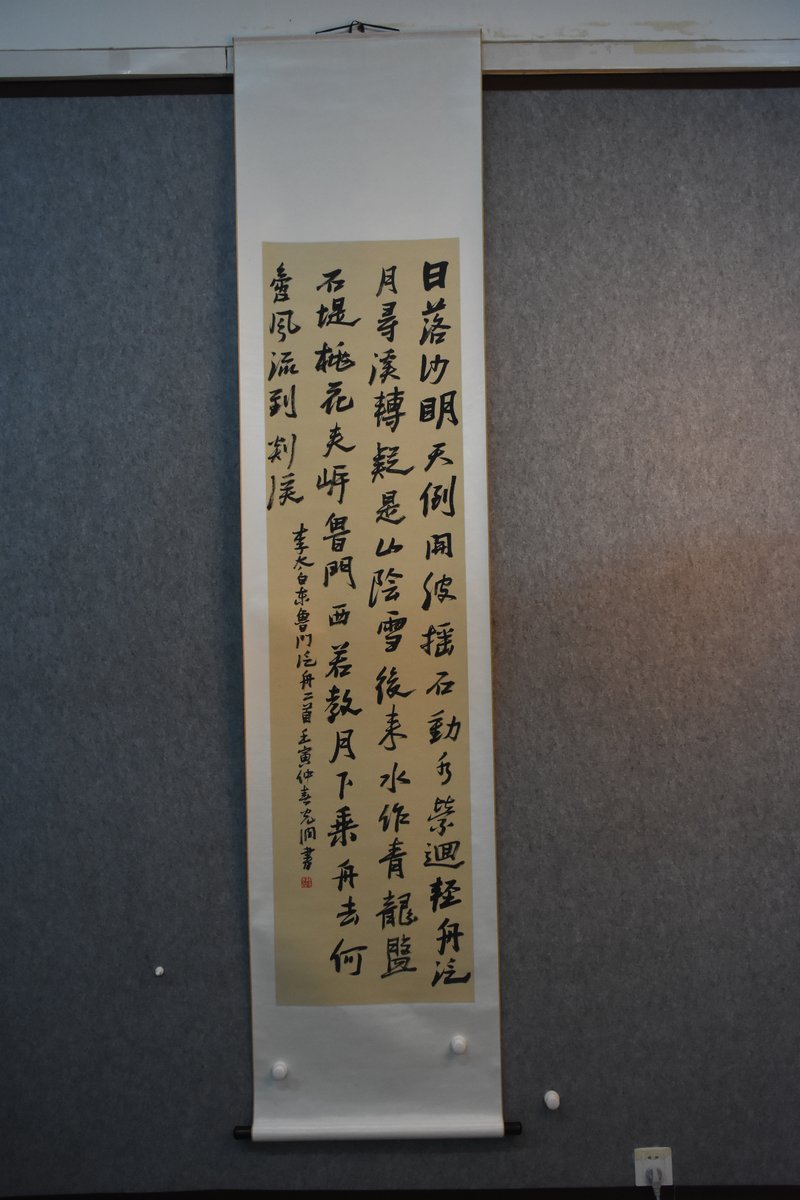 日落沙明天倒開波摇石動水縈迴輕舟泛
月尋溪轉疑是山陰雪後来水作青龍盤
石堤桃花夾岸魯門西若教月下乗舟去何
啻風流到剡溪
李太白東魯門泛舟二首 壬寅仲春 書